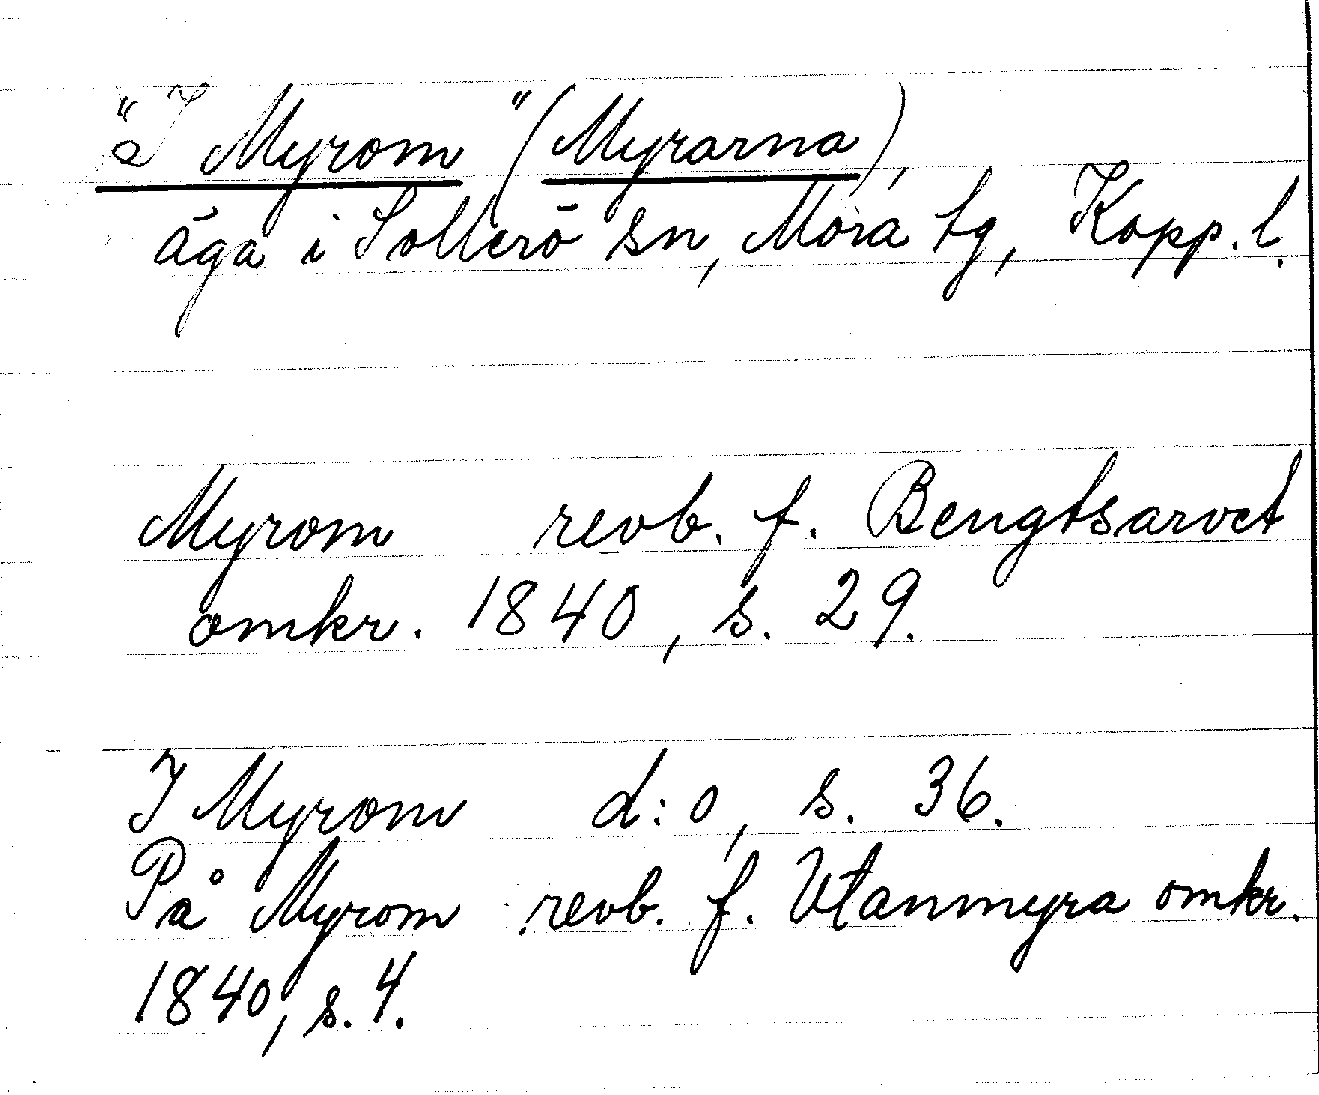 "I Myrom" (Myrarna),
äga i Sollerö sn, Mora tg, Kopp. l.
Myrom revb. f. Bengtsarvet
omkr. 1840, s. 29.
I Myrom d:o, s. 36.
På Myrom revb. f. Utanmyra omkr.
1840, s. 4.